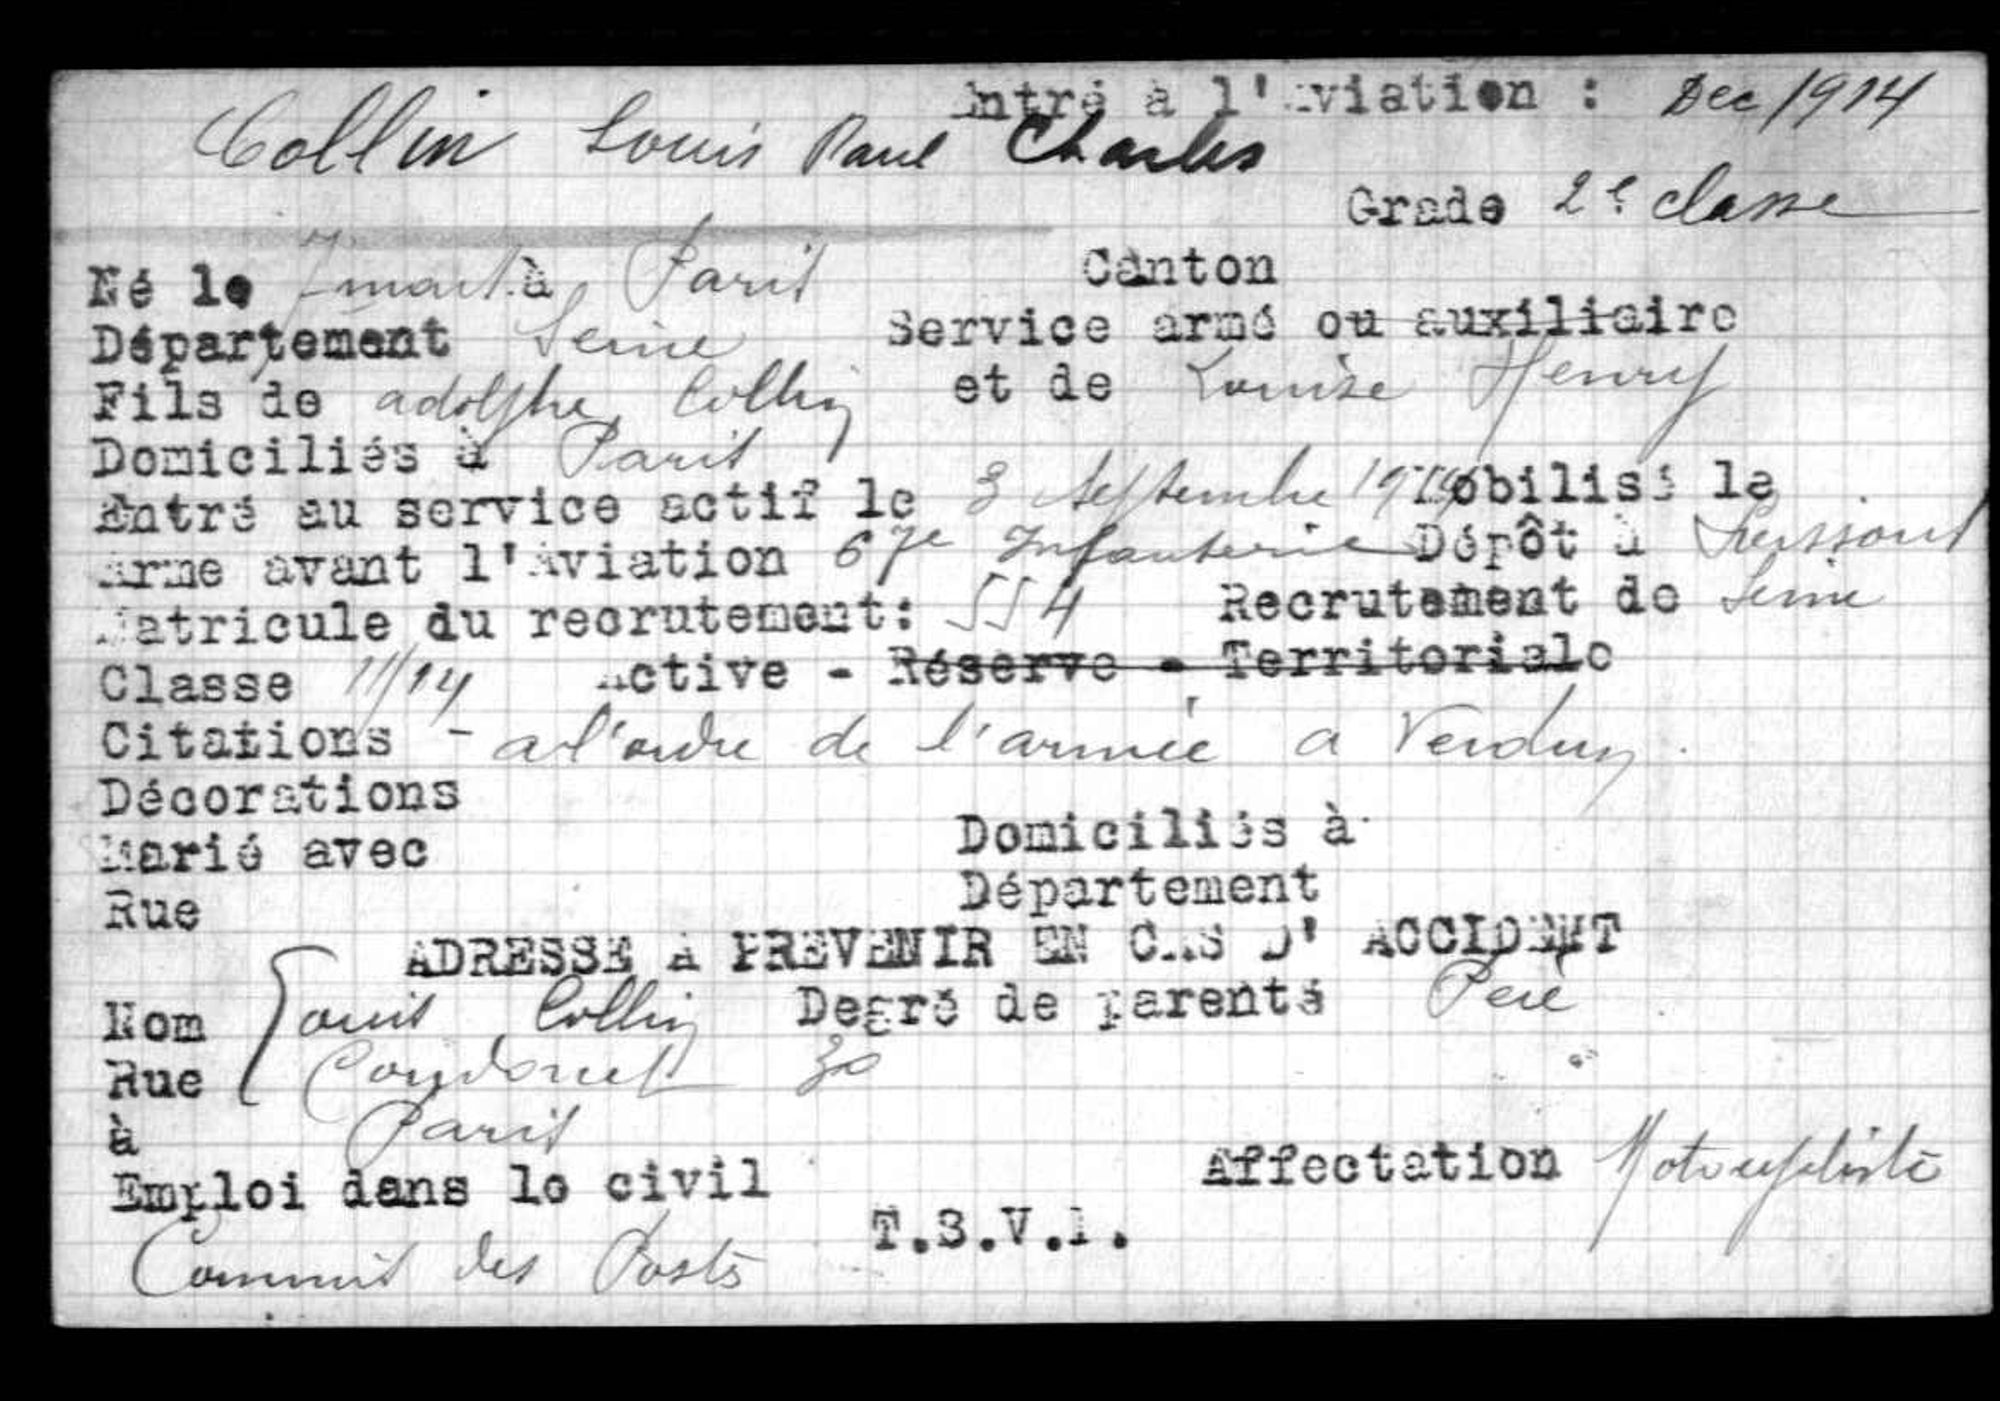 Entré à l'Aviation : Dec 1914
Collin Louis Paul Charles
Grade 2e classe
Né le 7 mars à Paris Canton
Département Seine Service armé ou auxiliaire
Fils de adolphe Collin et de Louise Henry
Domiciliés à Paris
Entré au service actif le 3 Septembre 1914 Mobilisé le
Arme avant l'Aviation 67e Infanterie Dépôt à
Matricule du recrutement: 554 Recrutement de Seine
Classe 11/14 Active - Réserve - Territoriale
Citations - a l'ordre de l'armée a Verdun.
Décorations
Marié avec Domiciliés à
Rue Département
ADRESSE A PREVENIR EN CAS D' ACCIDENT
Nom Louis Collin Degré de parenté Père
Rue 30
à Paris
Emploi dans le civil Affectation Motocycliste
Commis des Postes T.S.V.P.